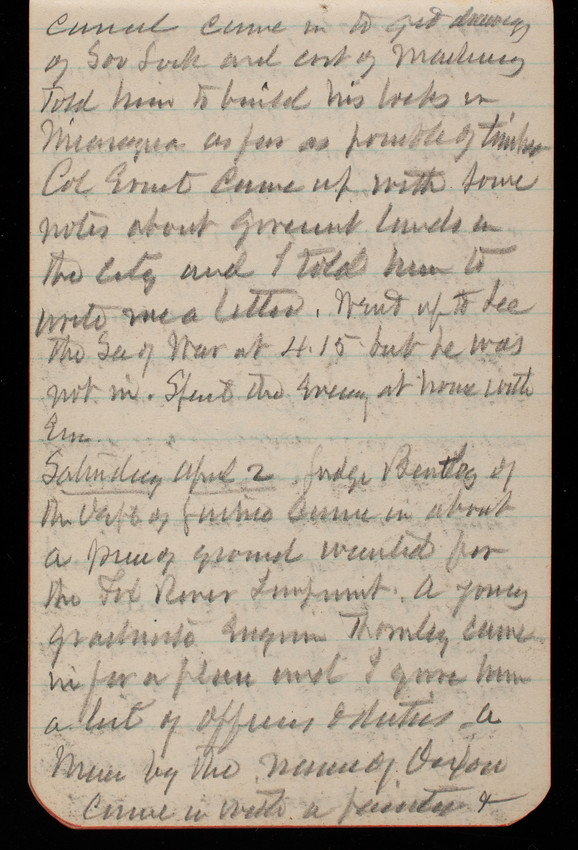 Canal came in to get drawings
of Gov Lock and cost of Machinery
Told him to build his locks in
Nicaragua as far as possible of timber
Col Ernst came up with some
notes about Goverment lands in
the city and I told him to
write me a letter. Went up to see
the Sec of War at 4.15 but he was
not in. Spent the Evening at home with
Em.
Saturday April 2. Judge Bentley of
the Dept of Justice came in about
a piece of ground wanted for
the Fox River Improvmt. A young
graduate Engineer Thornley came
in for a place and I gave him
a list of officers & duties. A
Man by the name of Dixon
came in with a painter &